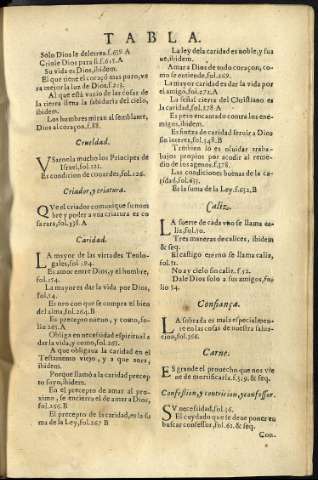 TABLA.
Solo Dios le deleita. f.659.A
Crióle Dios para si. f.615.A
Su vida es Dios, ibidem.
El que tiene el coraçō mas puro, ve-
ra mejor la luz de Dios. f.213.
Al que está vazio de las cosas de
la tierra llena la sabiduria del cielo,
ibidem.
Los hombres miran al semblante,
Dios al coraçon, f.88.
Crueldad.
VSaronla mucho los Principes de
Israel, fol.121.
Es condicion de couardes, fol.126.
Criador, y criatura.
QVe el criador comunique su nom
bre y poder a vna criatura es co
sa rara, fol.338.A
Caridad.
LA mayor de las virtudes Teolo-
gales, fol.194.
Es amor entre Dios, y el hombre,
fol.154.
La mayor es dar la vida por Dios,
fol.54.
Es oro con que se compra el bien
del alma, fol.204.B
Es precepto nueuo, y como, fo-
lio 265.A
Obliga en necessidad espiritual a
dar la vida, y como, fol.265.
A que obligaua la caridad en el
Testamento viejo, y a que aora,
ibidem.
Porque llamò a la caridad precep
to suyo, ibidem.
En el precepto de amar al pro-
ximo, se encierra el de amar a Dios,
fol.256.B
El precepto de la caridad, es la su
ma de la Ley, fol.267.B
La ley de la caridad es noble, y sua
ue, ibidem.
Amar a Dios de todo coraçon, co-
mo se entiende, fol.269.
La mayor caridad es dar la vida por
el amigo, fol.272.A
La señal cierta del Christiano es
la caridad, fol.278.A
Es peto encantado contra los ene-
migos, ibidem.
Es fuerza de caridad seruir a Dios
sin interes, fol.548.B
Tambien lo es oluidar trabajos
propios por acudir al reme-
dio de los agenos, f.578.
Las condiciones buenas de la ca-
ridad, fol.635.
Es la suma de la Ley, f.652.B
Caliz.
LA suerte de cada vno se llama ca-
liz, fol.50.
Tres maneras de calices, ibidem
& seq.
El castigo eterno se llama caliz,
fol.51.
No ay cielo sin caliz. f.52.
Dale Dios solo a sus amigos, fo-
lio 54.
Confiança.
LA sobrada es mala especialmen-
te en las cosas de nuestra salua-
cion, fol.366.
Carne.
ES grande el prouecho que nos vie
ne de mortificarla. f.519. & seq.
Confession, y contricion, y confessor.
SV necessidad, fol.36.
El cuydado que se deue poner en
buscar confessor, fol.61. & seq.
Con.